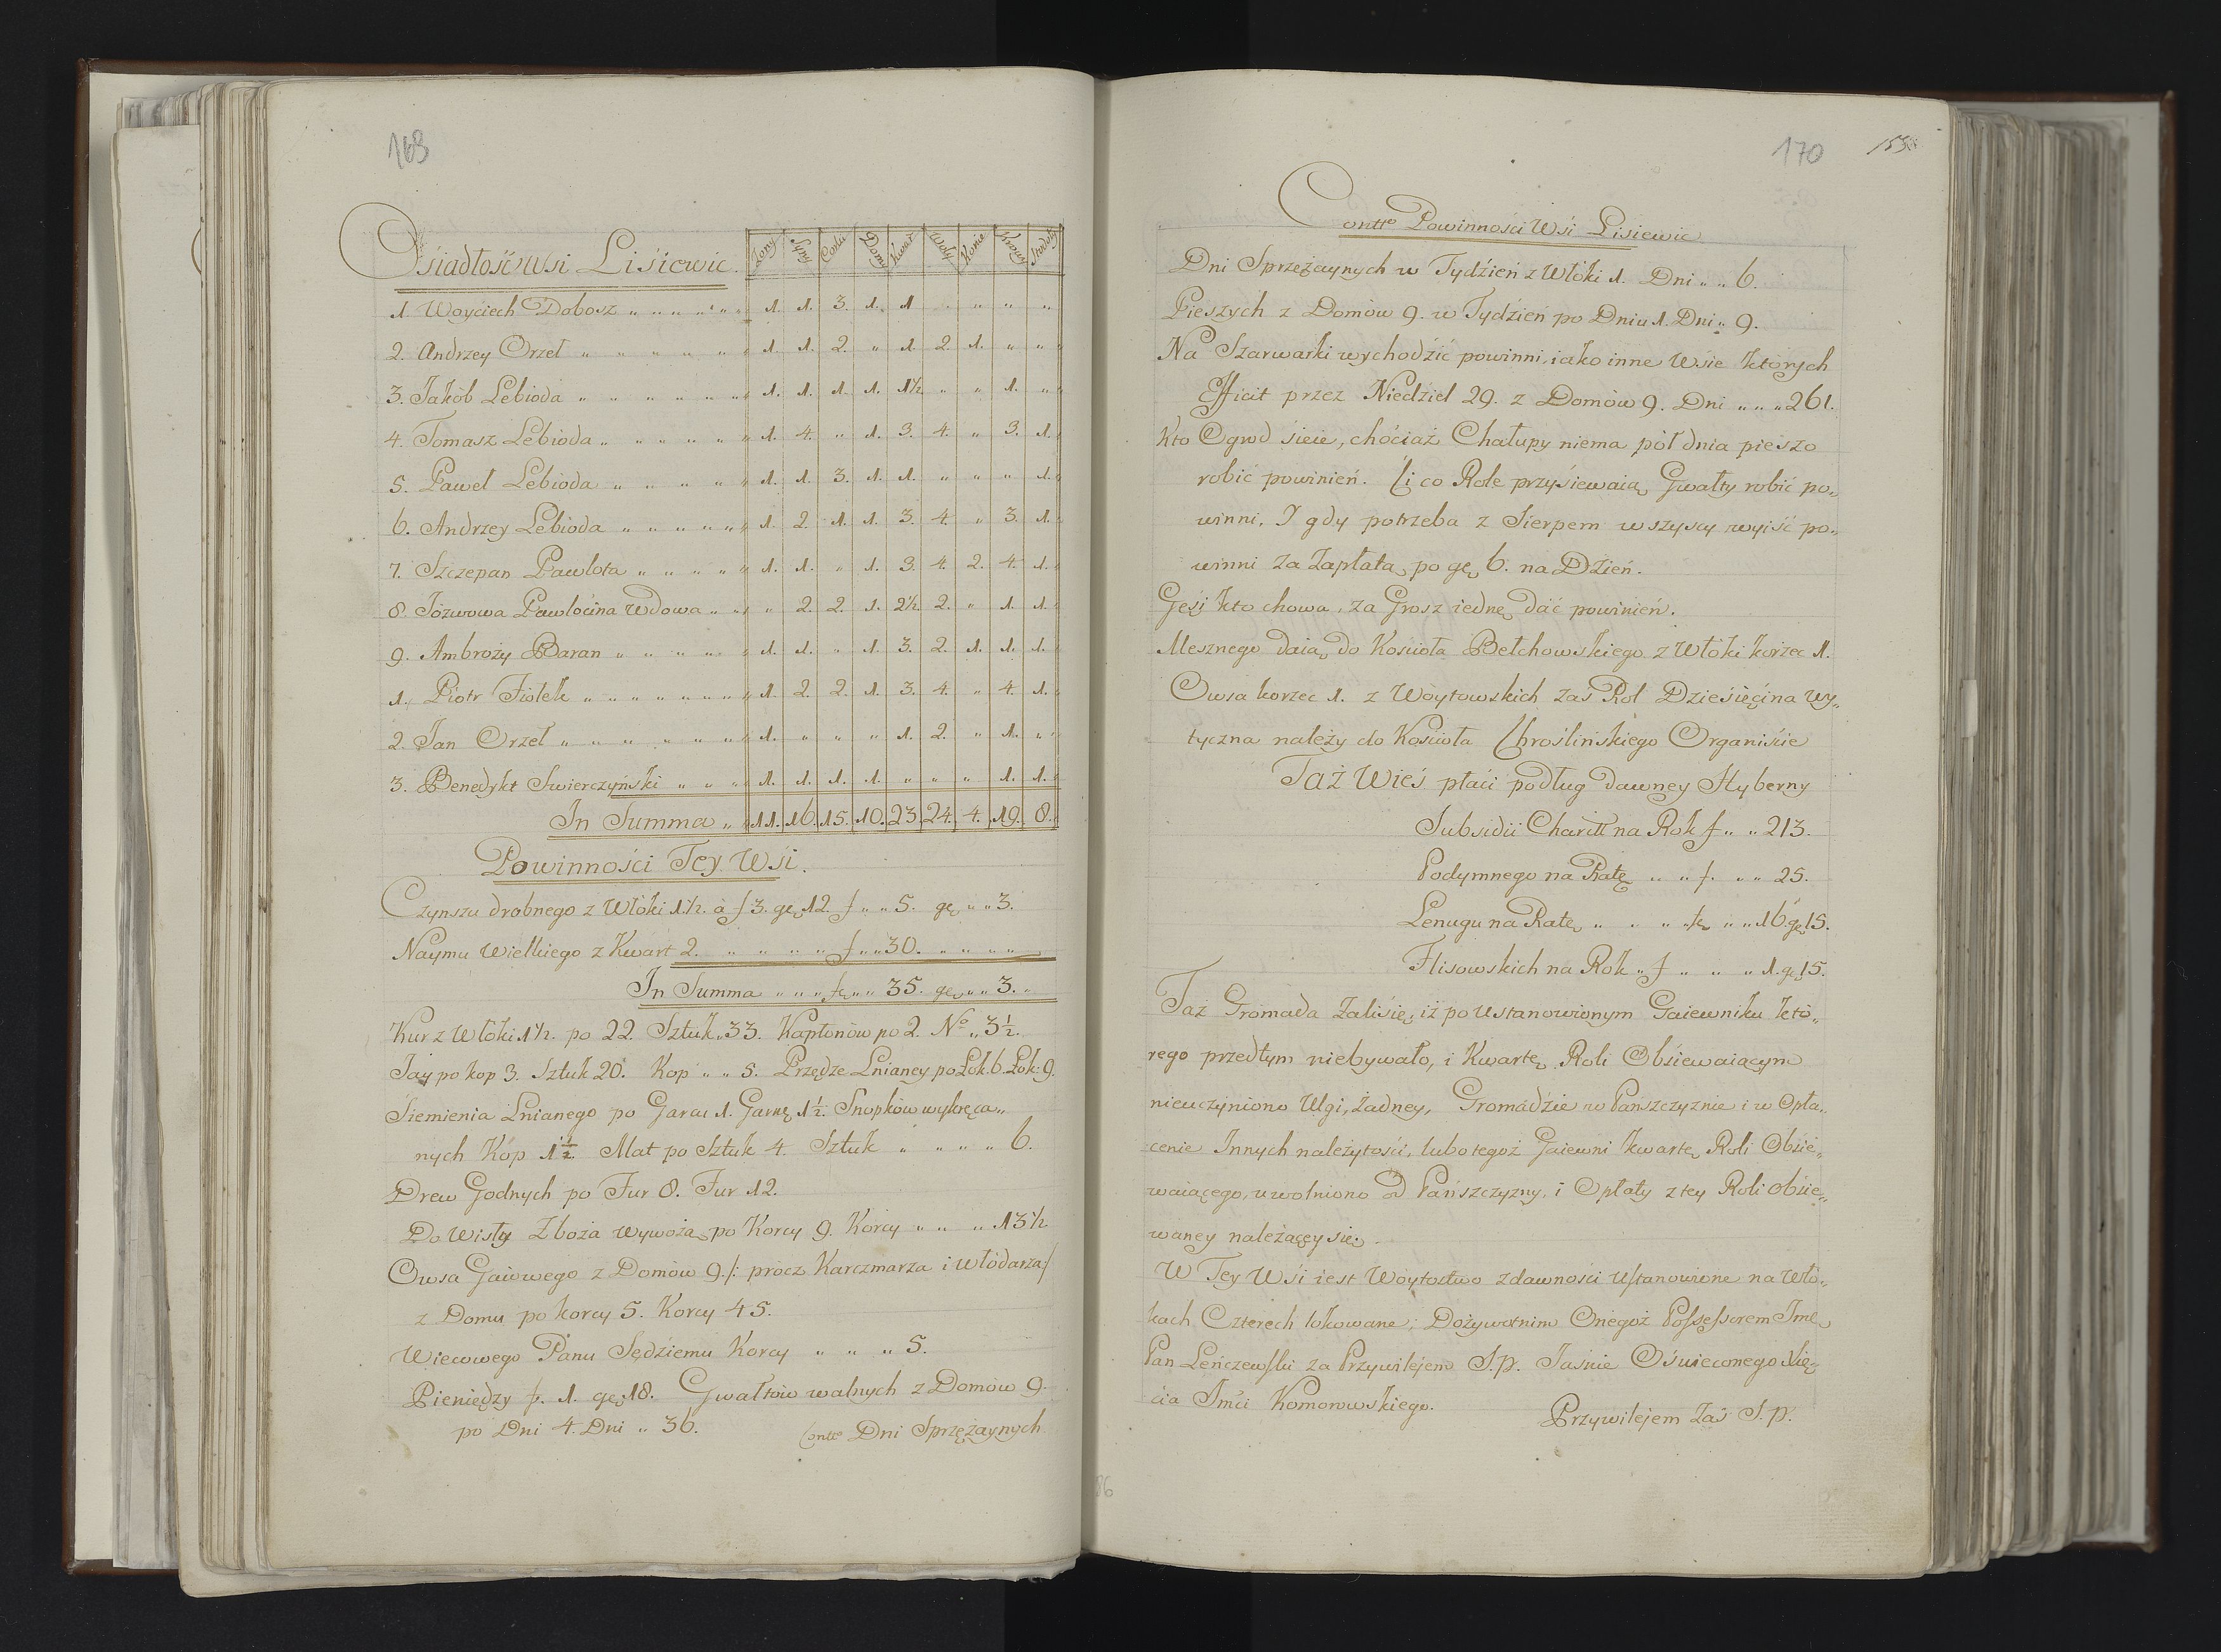 169
Osiadłość Wsi Lisiewic. Żony Syny Corki Domy Kwart Woły Konie Krowy Stodoły
1. Woyciech Dobosz „ „ „ „ „ „ 1. 1. 3. 1. 1 „ „ „ „
2. Andrzey Orzeł „ „ „ „ „ „ 1. 1. 2. „ 1. 2. 1. „ „
3. Jakób Lebioda „ „ „ „ „ „ 1. 1. 1. 1. 1½ „ „ 1. „
4. Tomasz Lebioda „ „ „ „ „ „ 1. 4. „ 1. 3. 4. „ 3. 1.
5. Paweł Lebioda „ „ „ „ „ 1. 1. 3. 1. 1. „ „ „ 1.
6. Andrzey Lebioda „ „ „ „ „ 1. 2. 1. 1. 3. 4. „ 3. 1.
7. Szczepan Pawlota „ „ „ „ „ 1. 1. „ 1. 3. 4. 2. 4. 1.
8. Jozwowa Pawlocina Wdowa „ „ „ 2. 2. 1. 2½ 2. „ 1. 1.
9. Ambroży Baran „ „ „ „ „ 1. 1. „ 1. 3. 2. 1. 1. 1.
1. Piotr Fiołek „ „ „ „ „ „ „ 1. 2. 2. 1. 3. 4. „ 4. 1.
2. Jan Orzeł „ „ „ „ „ „ „ 1. „ „ „ 1. 2. „ 1. „
3. Benedykt Swierczyński „ „ „ 1. 1. 1. 1. „ „ „ 1. 1.
In Summa „ 11. 16. 15. 10. 23. 24. 4. 19. 8.
Powinności Tey Wsi.
Czynszu drobnego z Włóki 1½. á f 3. gę 12. f „ „ 5. gę „ „ 3.
Naymu Wielkiego z Kwart 2. „ „ „ „ „ f „ „ 30. „ „ „ „
In Summa „ „ „ fę „ „ 35. gę „ „ 3. „
Kur z Włóki 1½. po 22. Sztuk „ 33. Kapłonów po 2. No „ 3½.
Jay po kop 3. Sztuk 20. Kop „ „ 5. Przędze Lnianey po Łok. 6. Łok: 9.
Siemienia Lnianego po Garcu 1. Garnę 1½. Snopków wykręca„
nych Kóp 1½. Mat po Sztuk 4. Sztuk „ „ „ „ 6.
Drew Godnych po Fur 8. Fur 12.
Do Wisły Zboża wywożą po Korcy 9. Korcy „ „ „ 13½
Owsa Gaiowego z Domów 9 /: procz Karczmarza i Włódarza :/
z Domu po korcy 5. Korcy 45.
Wiecowego Panu Sędziemu Korcy „ „ „ 5.
Pieniędzy f. 1. gę 18. Gwałtów walnych z Domów 9.
po Dni 4. Dni „ 36. Contto Dni Sprzężaynych
170 153
Contto Powinności Wsi Lisiewic
Dni Sprzężaynych w Tydzień z Włóki 1. Dni „ „ 6.
Pieszych z Domów 9. w Tydzień po Dniu 1. Dni „ 9.
Na Szarwarki wychodzić powinni, iako inne Wsie których
Efficit przez Niedziel 29. z Domów 9. Dni „ „ „ 261.
Kto Ogrod sieie, chóciaż Chałupy niema, pół dnia pieszo
robić powinień. Ci co Role przysiewaią, Gwałty robić po„
winni, I gdy potrzeba z Sierpem wszyscy wyiść po„
winni za Zapłatą po gę 6. na Dzień.
Gęsi kto chowa, za Grosz iednę dać powinień.
Mesznego daią do Kosciola Bełchowskiego z Włóki korzec 1.
Owsa korzec 1. z Woytowskich zaś Rol Dziesięcina wy„
tyczna należy do Kościoła Chroślińskiego Organiście
Taż Wieś płaci podług dawney Hyberny
Subsidii Charitt na Rok f „ „ 213.
Podymnego na Ratę „ „ f. „ „ 25.
Lenugu na Ratę „ „ „ fę „ „ 16 gę 15.
Flisowskich na Rok „ f „ „ „ 1. gę 15.
Taż Gromada żali się, iż po Ustanowionym Gaiewniku któ„
rego przedtym niebywało, i Kwartę Roli Obsiewaiącym
nieuczyniono Ulgi, żadney, Gromádzie w Pańszczyznie i w Opła„
cenie Innych należytości, lubo tegoż Gaiewni kwartę Roli Obsie„
waiącego, uwolniono od Pańszczyzny, i Opłaty z tey Roli obsie„
waney należącey się.
W Tey Wsi iest Woytostwo zdawności Ustanowione na Wło„
kach Czterech lokowane; Dożywotnim Onegoż Possessorem Jmć
Pan Leńczewski za Przywilejem S.p. Jaśnie Oświeconego Xię„
cia Jmći Komorowskiego.
Przywilejem Zaś S.p.
86